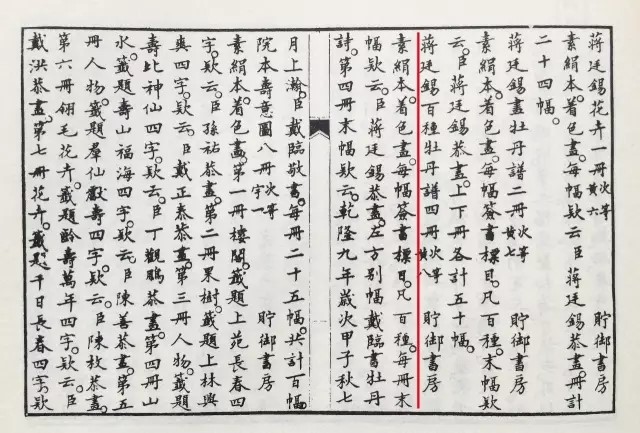 蔣廷錫花卉一冊次等黃六 貯御書房
素絹本着色畫每幅欵云臣蔣廷錫恭畫冊計
二十四幅
蔣廷錫畫牡丹譜二冊次等黃七 貯御書房
素絹本着色畫每幅簽書標目凡百種末幅欵
云臣蔣廷錫恭畫上下冊各計五十幅
蔣廷錫百種牡丹譜四冊次等黃八 貯御書房
素絹本着色畫每幅簽書標目凡百種每冊末
幅欵云臣蔣廷錫恭畫左方別幅戴臨書牡丹
詩第四冊末幅欵云乾隆九年歲次甲子秋七
月上瀚臣戴臨敬書每冊二十五幅共計百幅
院本壽意圖八冊次等宇一 貯御書房
素絹本着色畫第一冊樓閣籤題上苑長春四
字欵云臣孫祜恭畫第二冊果樹籤題上林與
爽四字欵云臣戴正泰恭畫第三冊人物籤題
壽比神仙四字欵云臣丁觀鵬恭畫第四冊山
水籤題壽山福海四字欵云臣陳善恭畫第五
冊人物籤題羣仙獻壽四字欵云臣陳枚恭畫
第六冊翎毛花卉籤題齡壽萬年四字欵云臣
戴洪恭畫第七冊花卉籤題千日長春四字欵